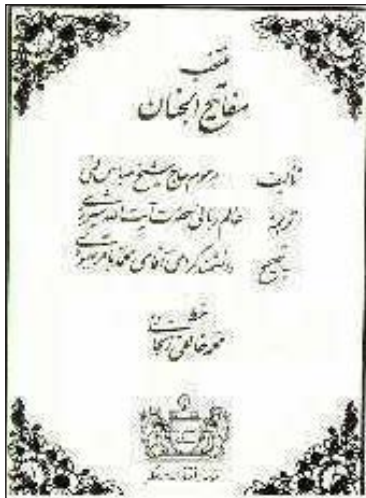 منتخب
مفاتیح الجنان
تألیف مرحوم حاج شیخ عباس قمی
ترجمه عالم ربانی حضرت آیت الله
تصحیح دانشمند گرامی آقای محمد باقر
خط
محمد خالقی زنجانی